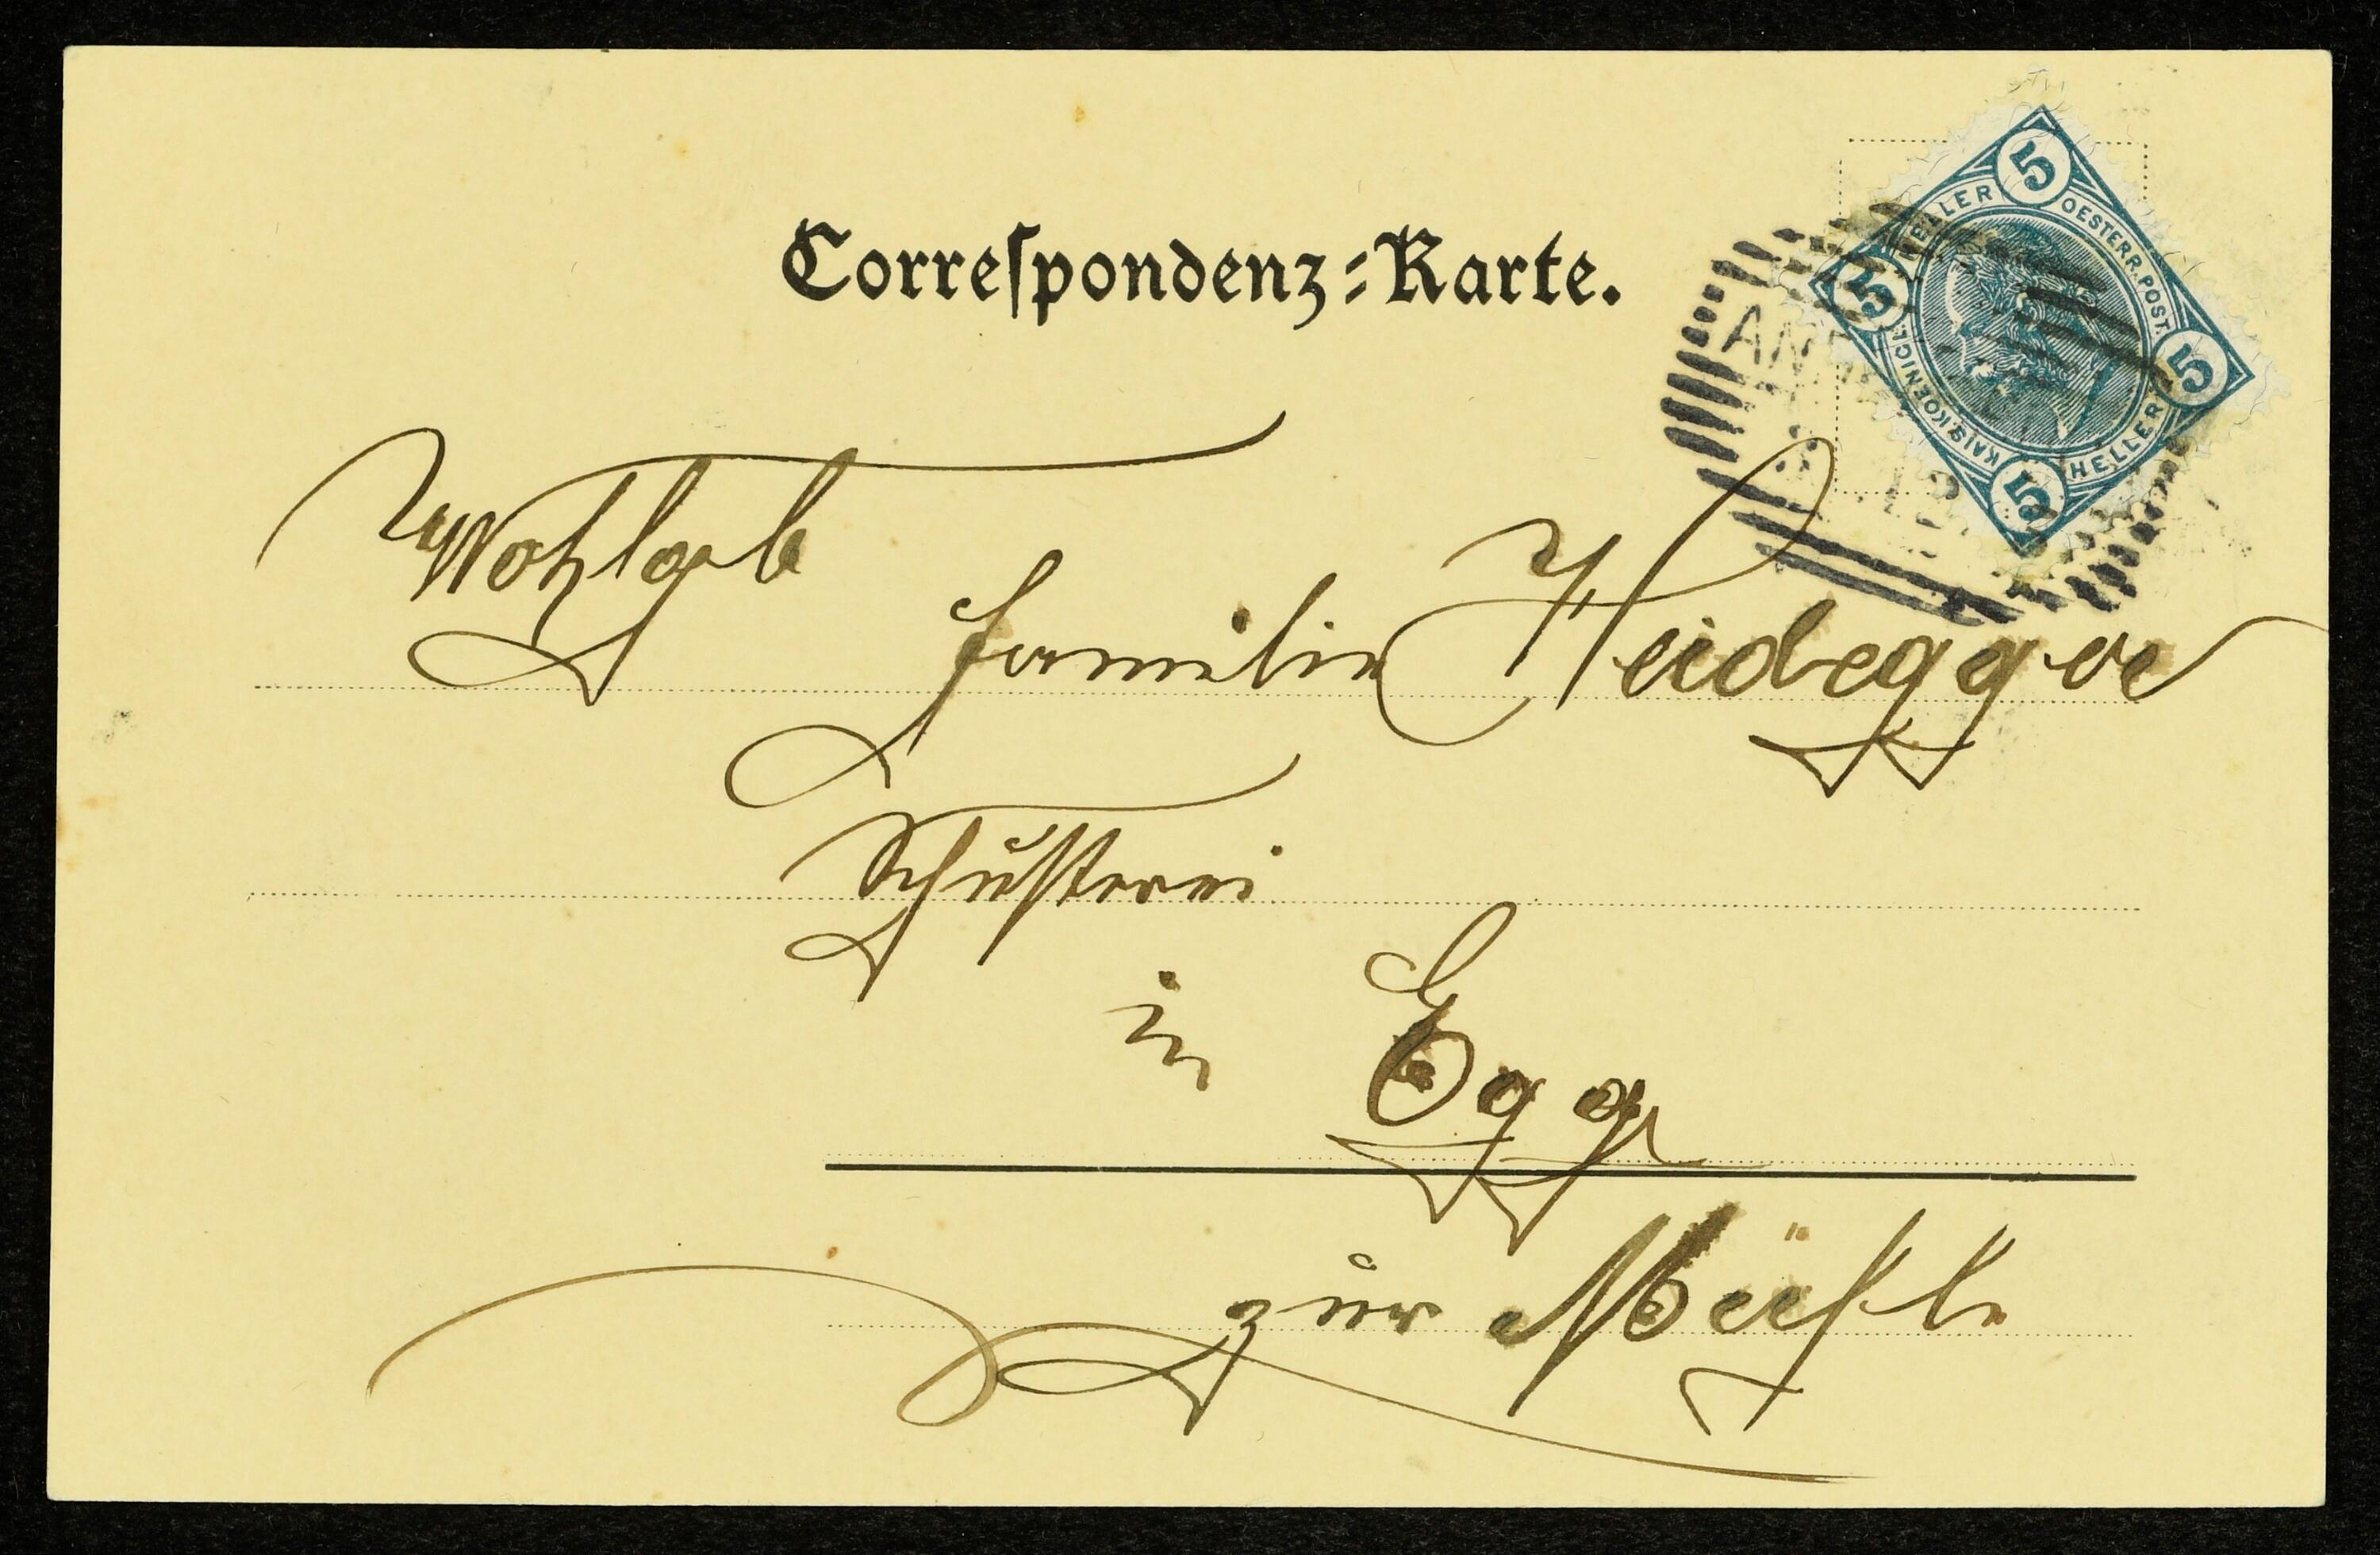 Correspondenz-Karte.
5 HELLER 5 OESTERR. POST. 5 HELLER 5 KAIS. KOENIGL.
Wohlgeb
Familie Heidegger
Schusterei
in Egg
zur Mühle